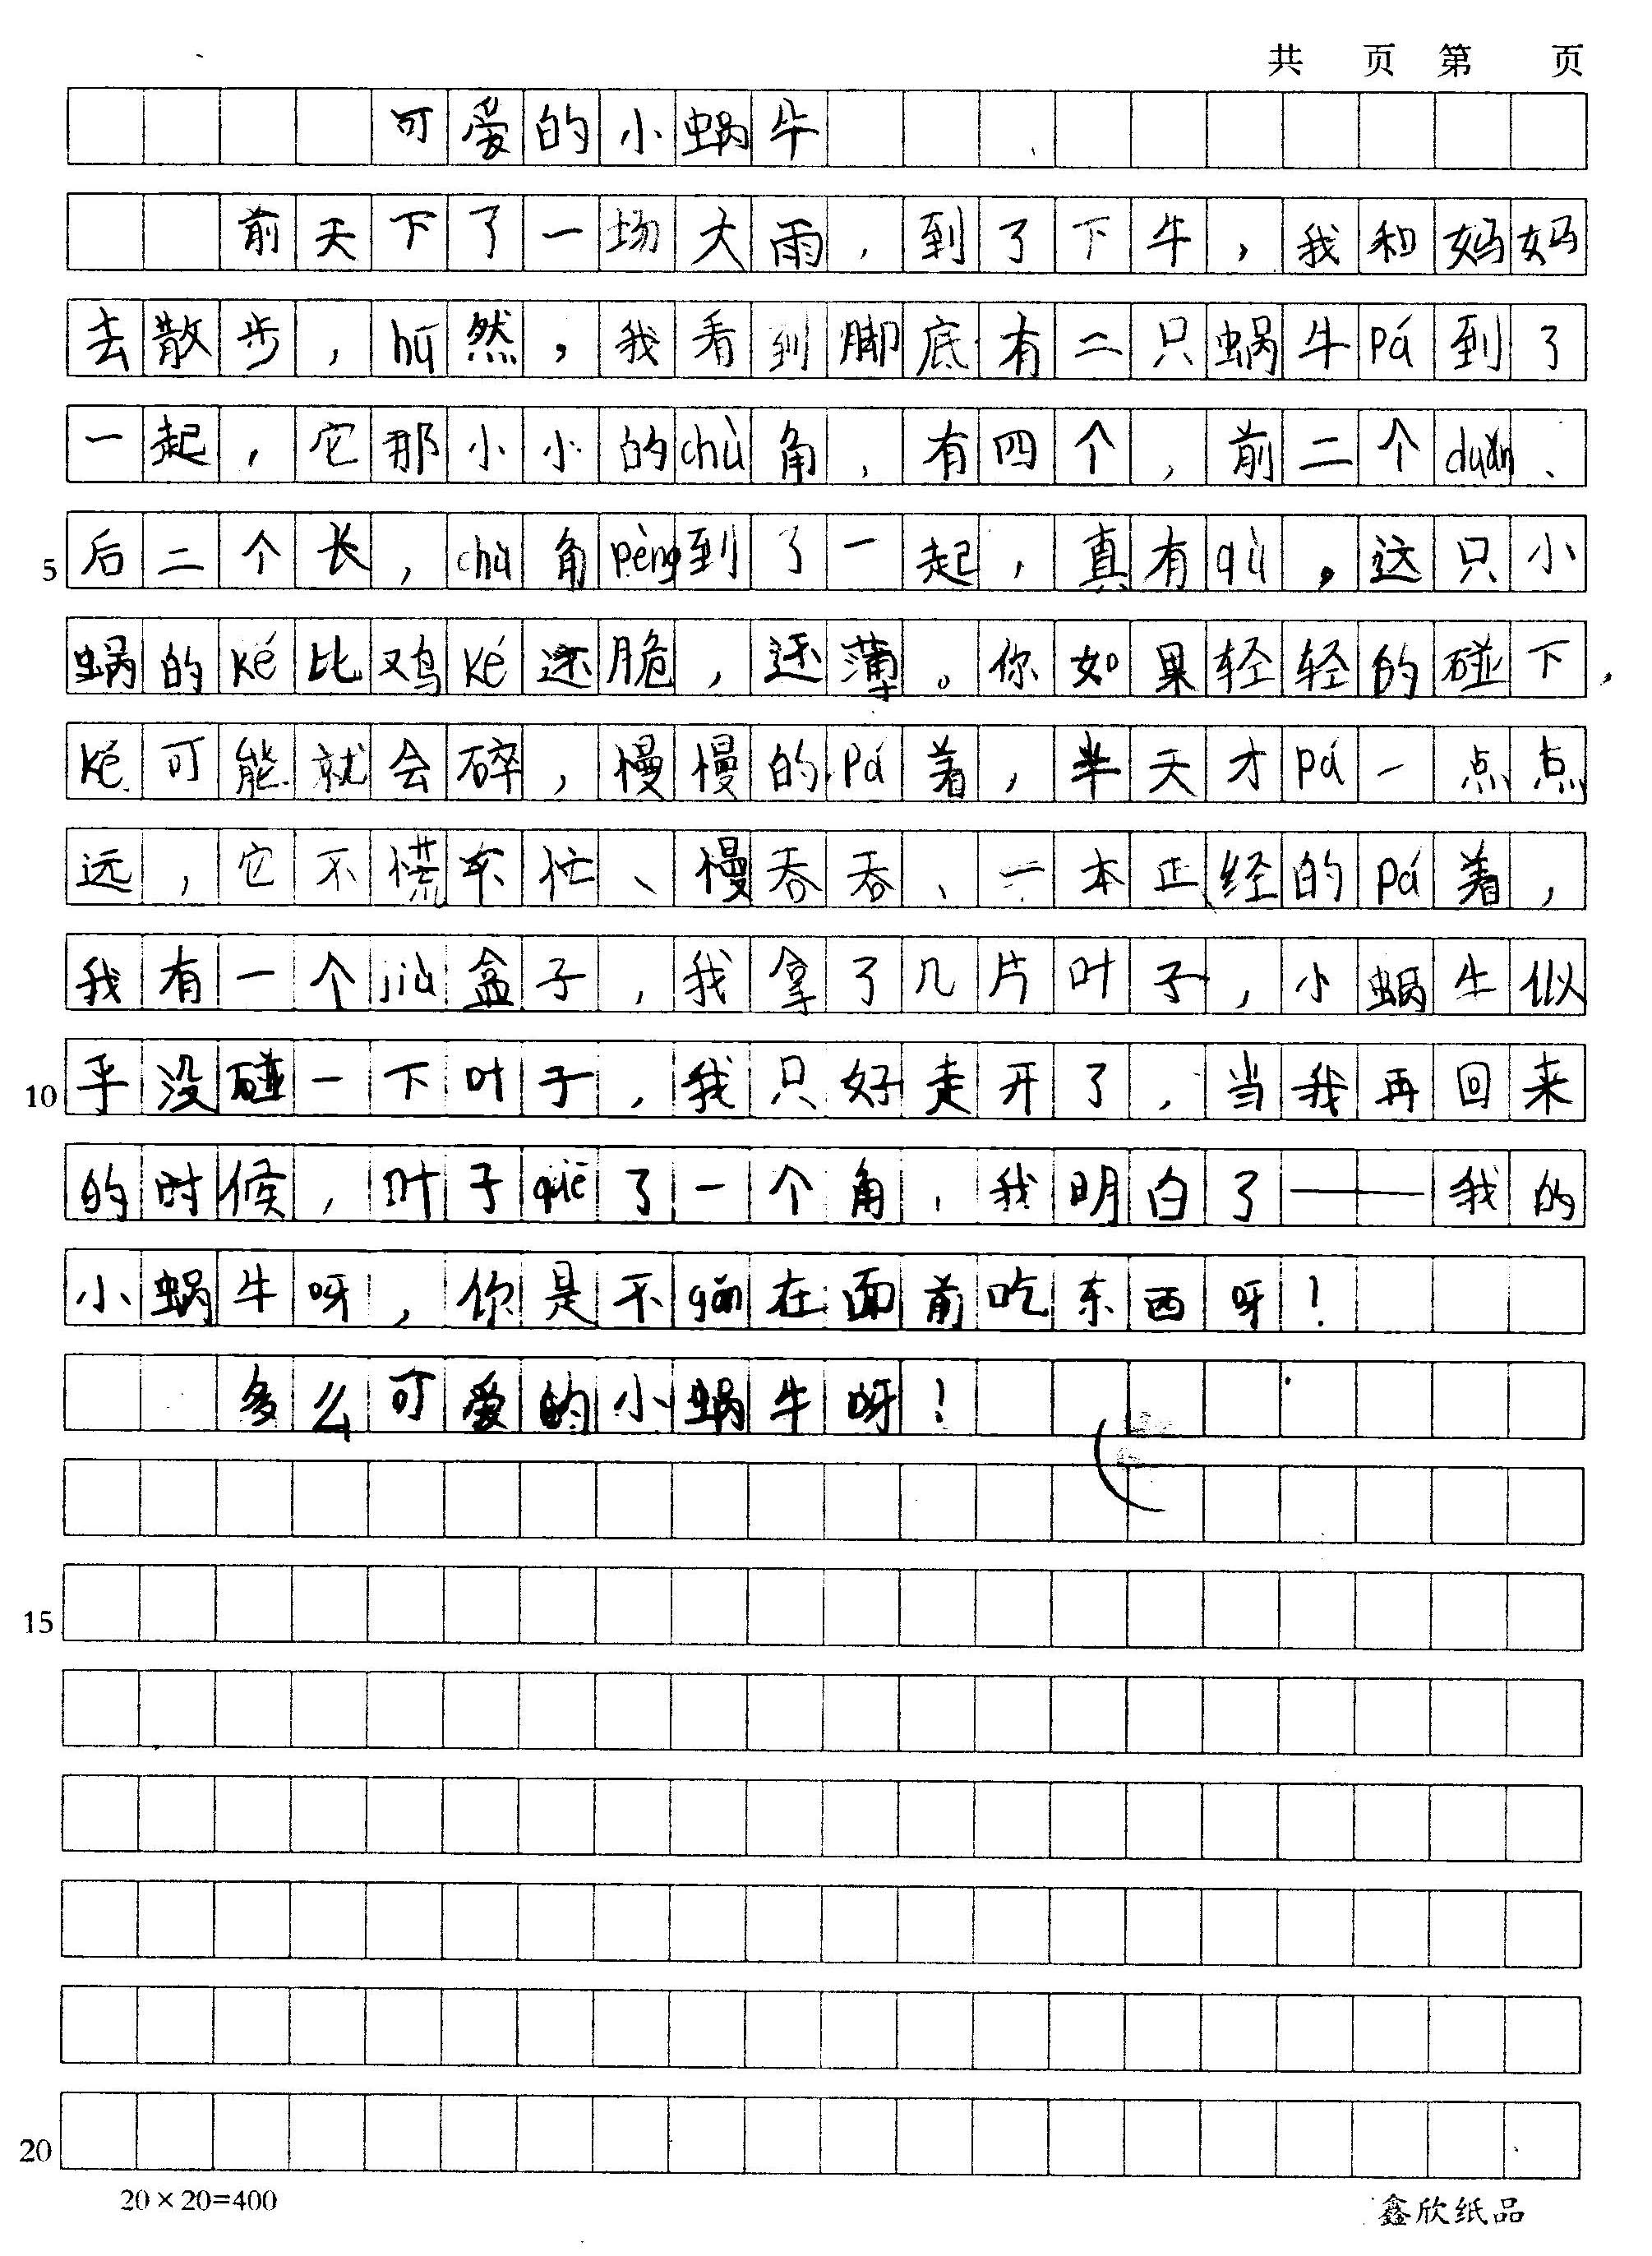 共 页 第 页
可爱的小蜗牛
前天下了一场大雨，到了下牛，我和妈妈
去散步，hū然，我看到脚底有二只蜗牛pá到了
一起，它那小小的chù角，有四个，前二个duǎn、
5 后二个长，chù角pèng到了一起，真有qù，这只小
蜗的ké比鸡ké还脆，还薄。你如果轻轻的碰下，
ké可能就会碎，慢慢的pá着，半天才pá一点点
远，它不慌不忙、慢吞吞、一本正经的pá着，
我有一个jiù盒子，我拿了几片叶子，小蜗牛似
10 乎没碰一下叶子，我只好走开了，当我再回来
的时候，叶子quē了一个角，我明白了——我的
小蜗牛呀，你是不gǎn在面前吃东西呀！
多么可爱的小蜗牛呀！
15
20
20×20=400 鑫欣纸品